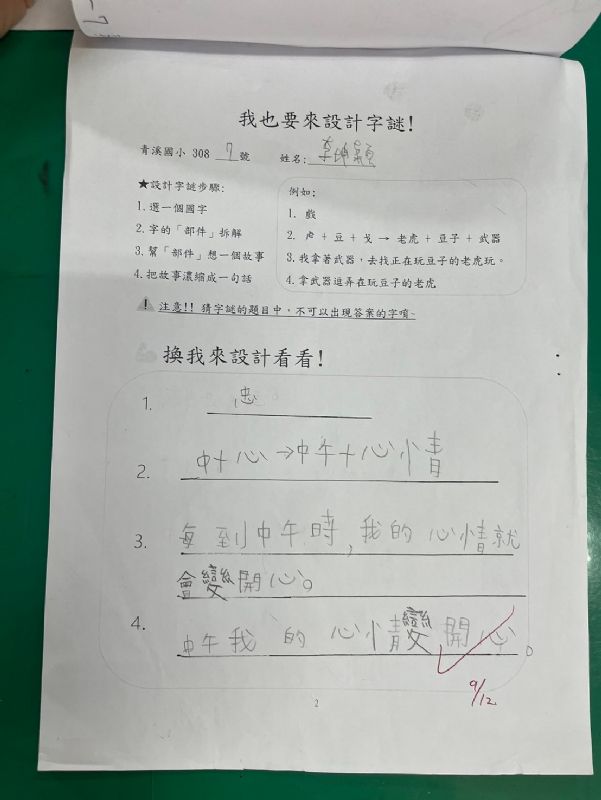 我也要來設計字謎!
青溪國小 308 7 號 姓名:
★設計字謎步驟:
1. 選一個國字
2. 字的「部件」拆解
3. 幫「部件」想一個故事
4. 把故事濃縮成一句話
例如:
1. 戲
2. 虍 + 豆 + 戈 → 老虎 + 豆子 + 武器
3. 我拿著武器,去找正在玩豆子的老虎玩。
4. 拿武器逗弄在玩豆子的老虎
! 注意!! 猜字謎的題目中,不可以出現答案的字唷~
換我來設計看看!
1. 忠
2. 中+心→中午+心情
3. 每到中午時,我的心情就
會變開心。
4. 中午我的心情變開心。
9/12
2